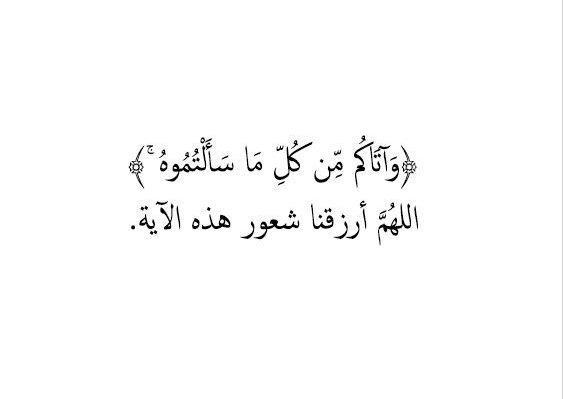 ﴿وَآتَاكُم مِّن كُلِّ مَا سَأَلْتُمُوهُ ۚ﴾
اللهُمَّ أرزقنا شعور هذه الآية.